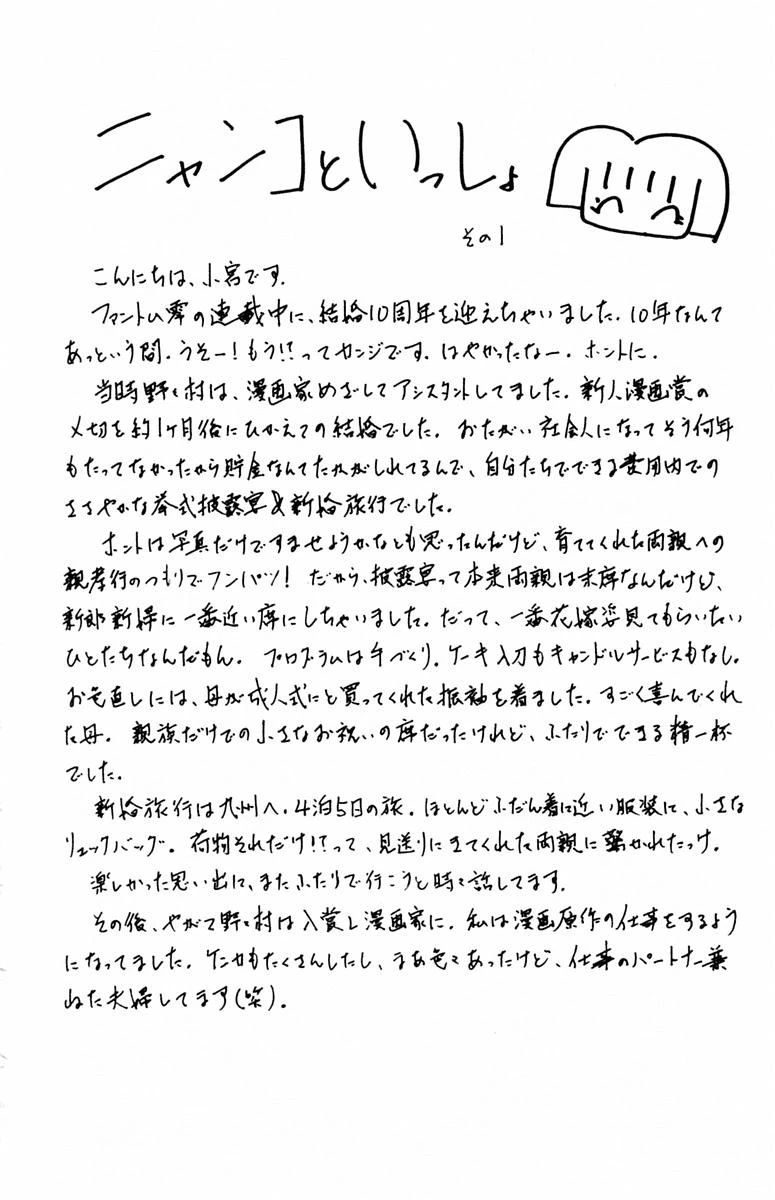 ニャンコといっしょ
その1
こんにちは、小宮です.
ファントム零の連載中に、結婚10周年を迎えちゃいました. 10年なんて
あっという間. うそー!もう!?ってカンジです. はやかったなー. ホントに.
当時野々村は、漫画家めざしてアシスタントしてました. 新人漫画賞の
〆切を約1ヶ月後にひかえての結婚でした. おたがい社会人になってそう何年
もたってなかったから貯金なんてたかがしれてるんで、自分たちでできる費用内での
ささやかな挙式披露宴&新婚旅行でした.
ホントは写真だけですませようかなとも思ったんだけど、育ててくれた両親への
親孝行のつもりでフンパツ! だから、披露宴って本来両親は末席なんだけど、
新郎新婦に一番近い席にしちゃいました. だって、一番花嫁姿見てもらいたい
ひとたちなんだもん. プログラムは手づくり. ケーキ入刀もキャンドルサービスもなし.
お色直しには、母が成人式にと買ってくれた振袖を着ました. すごく喜んでくれ
た母. 親族だけでの小さなお祝いの席だったけれど、ふたりでできる精一杯
でした.
新婚旅行は九州へ. 4泊5日の旅. ほとんどふだん着に近い服装に、小さな
リュックバッグ. 荷物それだけ!?って、見送りにきてくれた両親に驚かれたっけ.
楽しかった思い出に、またふたりで行こうと時々話してます.
その後、やがて野々村は入賞し漫画家に. 私は漫画原作の仕事をするよう
になってました. ケンカもたくさんしたし、まあ色々あったけど、仕事のパートナー兼
ねた夫婦してます(笑).